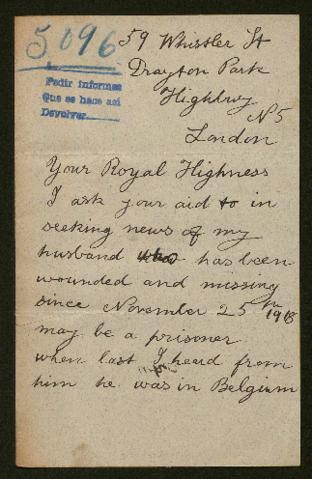 5096
59 Whistler St
Drayton Park
Highbry
N5
London
Pedir informes
Que se hace así
Devolver
Your Royal Highness
I ask your aid to in
seeking news of my
husband who has been
wounded and missing
since November 25th 1918
may be a prisoner
when last I heard from
him he was in Belgium